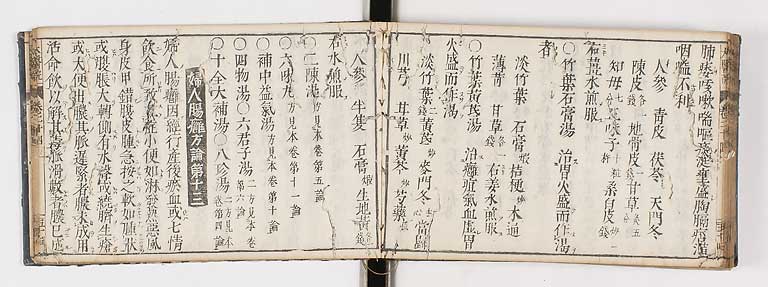 肺癆咳嗽喘嘔痰涎壅盛胸膈痞滿
咽嗌不利
人參 青皮 茯苓 天門冬
陳皮 地骨皮 甘草
知母 五味子 桑白皮
右薑水煎服
○竹葉石膏湯 治胃火盛而作渴
者
淡竹葉 石膏 桔梗 木通
薄荷 甘草 右姜水煎服
○竹葉黃芪湯 治癰疽氣血虛胃
火盛而作渴
淡竹葉 黃芪 麥門冬 當歸
川芎 甘草 黃芩 芍藥
人參 半夏 石膏 生地黃
右水煎服
○二陳湯 方見本卷第五論
○六味丸 方見本卷第十一論
○補中益氣湯 方見本卷第十論
○四物湯○六君子湯 二方見本卷第六論
○十全大補湯○八珍湯 二方見本卷第四論
婦人腸癰方論第十三
婦人腸癰因經行產後瘀血或七情
飲食所致其症小便如淋發熱惡風
身皮甲錯腹皮腫急按之軟如腫狀
或腹脹大轉側有水聲或繞臍生瘡
或大便出膿其脈遲緊者膿未成用
活命飲以解其毒脈滑數者膿已成